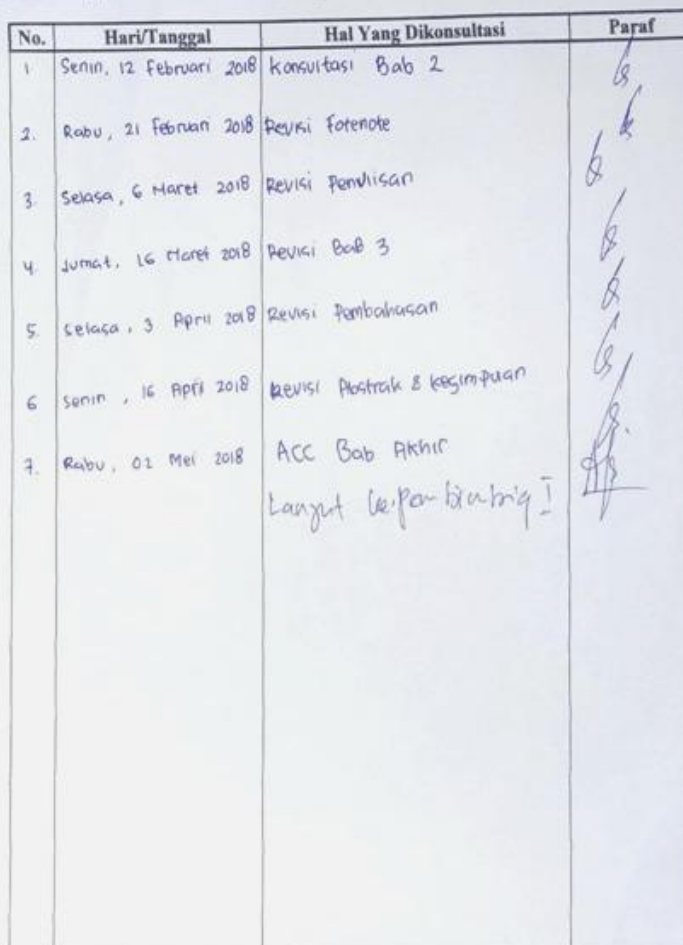 No. Hari/Tanggal Hal Yang Dikonsultasi Paraf
1 Senin, 12 Februari 2018 Konsultasi Bab 2
2. Rabu, 21 Februari 2018 Revisi Fotenote
3. Selasa, 6 Maret 2018 Revisi Penulisan
4. Jumat, 16 Maret 2018 Revisi Bab 3
5. Selasa, 3 April 2018 Revisi Pembahasan
6 Senin, 16 April 2018 Revisi Abstrak & kesimpuan
7. Rabu, 02 Mei 2018 ACC Bab Akhir
Lanjut ke pembimbing I